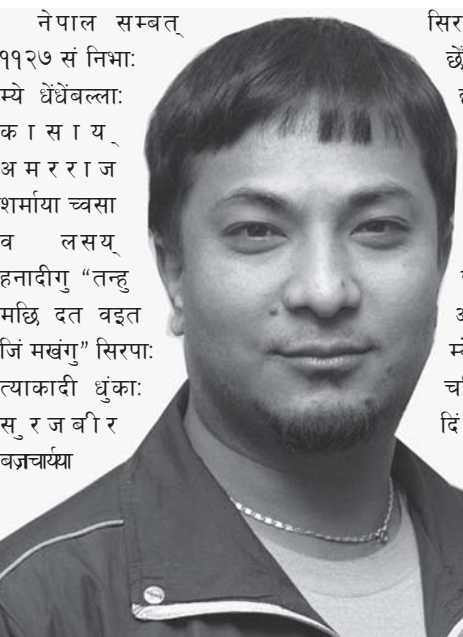 नेपाल सम्बत्
११२७ सं निभाः
म्ये धेंधेंबल्लाः
कासाय्
अमरराज
शर्माया च्वसा
व लसय्
हनादीगु “तन्हु
मछि दत वइत
जिं मखंगु” सिरपाः
त्याकादी धुंकाः
सुरजबीर
बज्राचार्यया
सिर
दिं